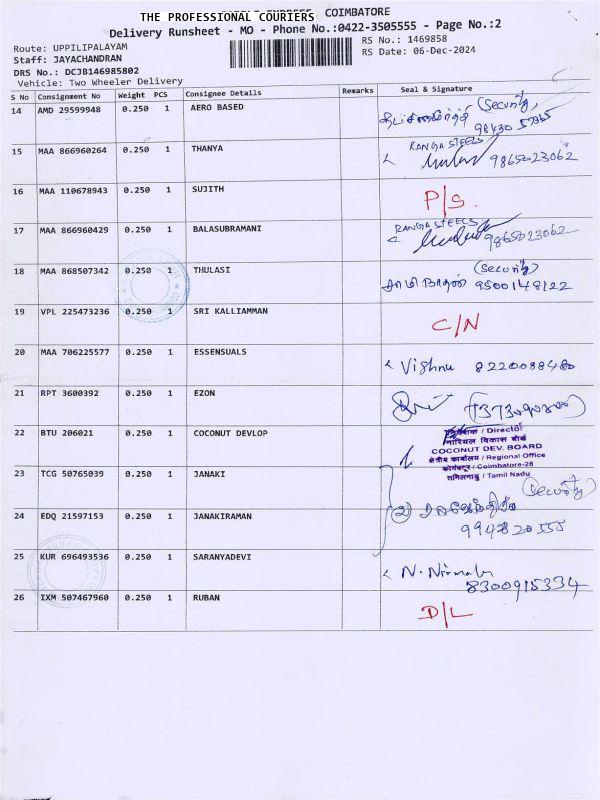 THE PROFESSIONAL COURIERS COIMBATORE
Delivery Runsheet - MO - Phone No.:0422-3505555 - Page No.:2
Route: UPPILIPALAYAM
RS No.: 1469858
Staff: JAYACHANDRAN
RS Date: 06-Dec-2024
DRS No.: DCJB146985802
Vehicle: Two Wheeler Delivery
S No Consignment No Weight PCS Consignee Details Remarks Seal & Signature
14 AMD 29599948 0.250 1 AERO BASED (Security)
15 MAA 866960264 0.250 1 THANYA RANGA STEELS 9865023062
16 MAA 110678943 0.250 1 SUJITH P/S.
17 MAA 866960429 0.250 1 BALASUBRAMANI RANGA STEELS 9865023062
18 MAA 868507342 0.250 1 THULASI (Security) 9500148122
19 VPL 225473236 0.250 1 SRI KALLIAMMAN C/N
20 MAA 706225577 0.250 1 ESSENSUALS Vishnu 8220088480
21 RPT 3600392 0.250 1 EZON
22 BTU 206021 0.250 1 COCONUT DEVLOP
निदेशक / Director
नारियल विकास बोर्ड
COCONUT DEV. BOARD
क्षेत्रीय कार्यालय / Regional Office
कोयंबटूर / Coimbatore-28
तमिलनाडु / Tamil Nadu
23 TCG 50765039 0.250 1 JANAKI (Security)
24 EDQ 21597153 0.250 1 JANAKIRAMAN 9947820555
25 KUR 696493536 0.250 1 SARANYADEVI N. Nirmala 8300915334
26 IXM 507467960 0.250 1 RUBAN D/L